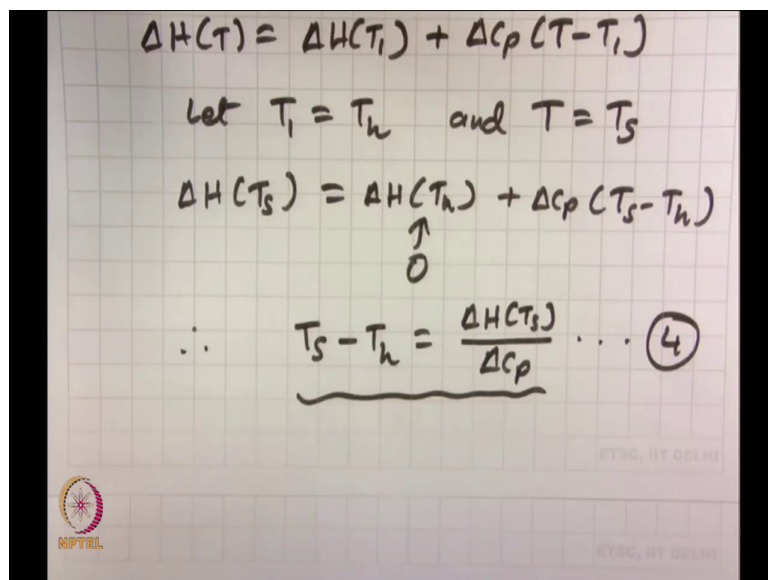 ΔH(T) = ΔH(T₁) + ΔCp (T-T₁)
Let T₁ = Tₕ and T = Tₛ
ΔH(Tₛ) = ΔH(Tₕ) + ΔCp (Tₛ-Tₕ)
↑
0
∴ Tₛ - Tₕ = ΔH(Tₛ)/ΔCp .... ④
ETSC, IIT DELHI
NPTEL
ETSC, IIT DELHI